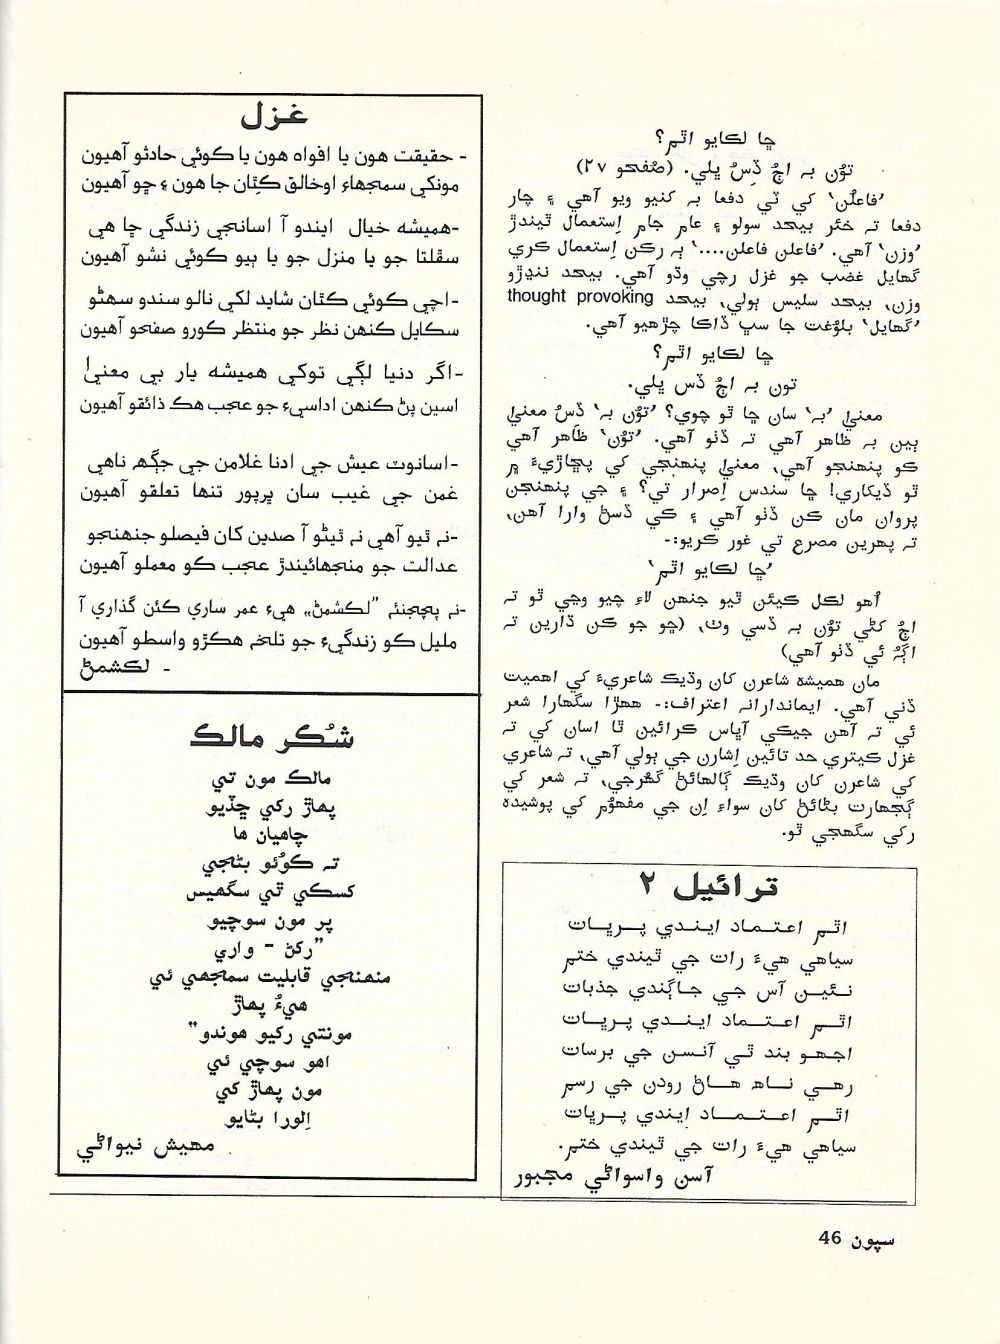 ڇا لڪايو اٿم؟
تُون بہ اڄُ ڏِسُ ڀلي. (صُفحو ٢٧)
’فاعلُن‘ کي ٽي دفعا بہ کنيو ويو آهي ۽ چار
دفعا تہ خئر بيحد سولو ۽ عام جام اِستعمال ٿيندڙ
’وزن‘ آهي. ’فاعلن فاعلن....‘ ٻہ رڪن اِستعمال ڪري
گهايل غضب جو غزل رچي وڌو آهي. بيحد ننڍڙو
وزن، بيحد سليس ٻولي، بيحد thought provoking
’گهايل‘ بلوُغت جا سڀ ڏاڪا چڙهيو آهي.
ڇا لڪايو اٿم؟
تون بہ اڄُ ڏس ڀلي.
معنيٰ ’بہ‘ سان ڇا ٿو چوي؟ ’تُون بہ‘ ڏسُ معنيٰ
ٻين بہ ظاهر آهي تہ ڏٺو آهي. ’تُون‘ ظاَهر آهي
ڪو پنهنجو آهي، معنيٰ پنهنجي کي پڇاڙيءَ ۾
ٿو ڏيکاري! ڇا سندس اِصرار تي؟ ۽ جي پنهنجن
پروان مان ڪن ڏٺو آهي ۽ ڪي ڏسڻ وارا آهن،
تہ پهرين مصرع تي غور ڪريو:-
’ڇا لڪايو اٿم‘
اُهو لڪل ڪيئن ٿيو جنهن لاءِ چيو وڃي ٿو تہ
اڄُ کڻي تُون بہ ڏسي وٺ، (ڇو جو ڪن ڌارين تہ
اڳُہُ ئي ڏٺو آهي)
مان هميشہ شاعرن کان وڌيڪ شاعريءَ کي اهميت
ڏني آهي. ايماندارانہ اعتراف:- ههڙا سگهارا شعر
ئي تہ آهن جيڪي آڀاس ڪرائين ٿا اسان کي تہ
غزل ڪيتري حد تائين اِشارن جي ٻولي آهي، تہ شاعري
کي شاعرن کان وڌيڪ ڳالهائڻ گهُرجي، تہ شعر کي
ڳجهارت بڻائڻ کان سواءِ اِن جي مفهوُم کي پوشيده
رکي سگهجي ٿو.
ترائيل ٢
اٿم اعتماد ايندي پريات
سياهي هيءَ رات جي ٿيندي ختم
نئين آس جي جاڳندي جذبات
اٿم اعتماد ايندي پريات
اجهو بند ٿي آنسن جي برسات
رهي ناهہ هاڻ رودن جي رسم
اٿم اعتماد اِيندي پريات
سياهي هيءَ رات جي ٿيندي ختم.
آسن واسواڻي مجبور
غزل
- حقيقت هون يا افواه هون يا ڪوئي حادثو آهيون
مونکي سمجهاءِ اوخالق ڪِٿان جا هون ۽ ڇو آهيون
-هميشه خيال ايندو آ اسانجي زندگي ڇا هي
سڦلتا جو يا منزل جو يا ٻيو ڪوئي نشو آهيون
-اچي ڪوئي ڪٿان شايد لکي نالو سندو سهڻو
سڪايل ڪنهن نظر جو منتظر ڪورو صفحو آهيون
-اگر دنيا لڳي توکي هميشه يار بي معنيٰ
اسين پڻ ڪنهن اداسيءَ جو عجب هڪ ذائقو آهيون
-اسانوٽ عيش جي ادنا غلامن جي جڳهہ ناهي
غمن جي غيب سان ڀرپور تنها تعلقو آهيون
-نہ ٿيو آهي نہ ٿيڻو آ صدين کان فيصلو جنهنجو
عدالت جو منجهائيندڙ عجب ڪو معملو آهيون
-نہ پڇجنئہ ”لڪشمڻ„ هيءَ عمر ساري ڪئن گذاري آ
مليل ڪو زندگيءَ جو تلخہ هڪڙو واسطو آهيون
- لڪشمڻ
شُڪر مالڪ
مالڪ مون تي
پهاڙ رکي ڇڏيو
چاهيان ها
تہ ڪوُئو بڻجي
کسڪي ٿي سگهيس
پر مون سوچيو
”رکڻ - واري
منهنجي قابليت سمجهي ئي
هيءُ پهاڙ
مونتي رکيو هوندو”
اهو سوچي ئي
مون پهاڙ کي
اِلورا بڻايو
مهيش نيواڻي
سپون 46